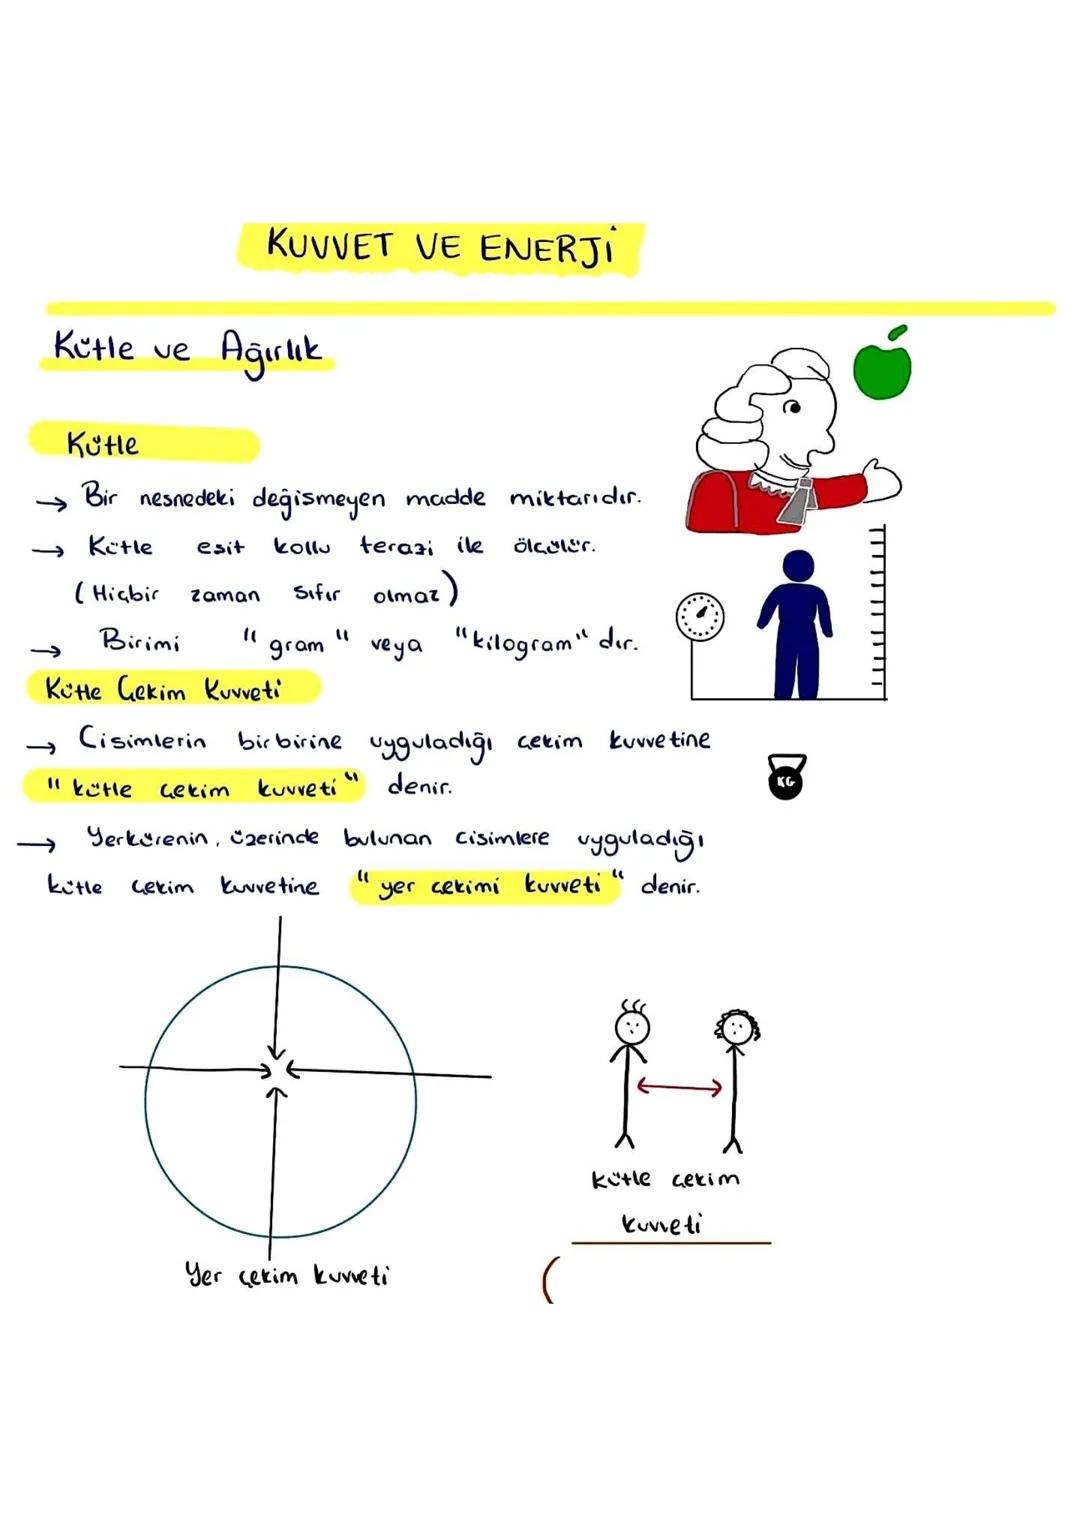 KUVVET VE ENERJİ
Kütle ve Ağırlık
Kütle
→ Bir nesnedeki değişmeyen madde miktarıdır.
→ Kütle eşit kollu terazi ile ölçülür.
(Hiçbir zaman sıfır olmaz)
→ Birimi "gram" veya "kilogram" dır.
Kütle Çekim Kuvveti
→ Cisimlerin birbirine uyguladığı çekim kuvvetine
"kütle çekim kuvveti" denir.
KG
→ Yerkürenin, üzerinde bulunan cisimlere uyguladığı
kütle çekim kuvvetine "yer çekimi kuvveti" denir.
kütle çekim
kuvveti
Yer çekim kuvveti
(